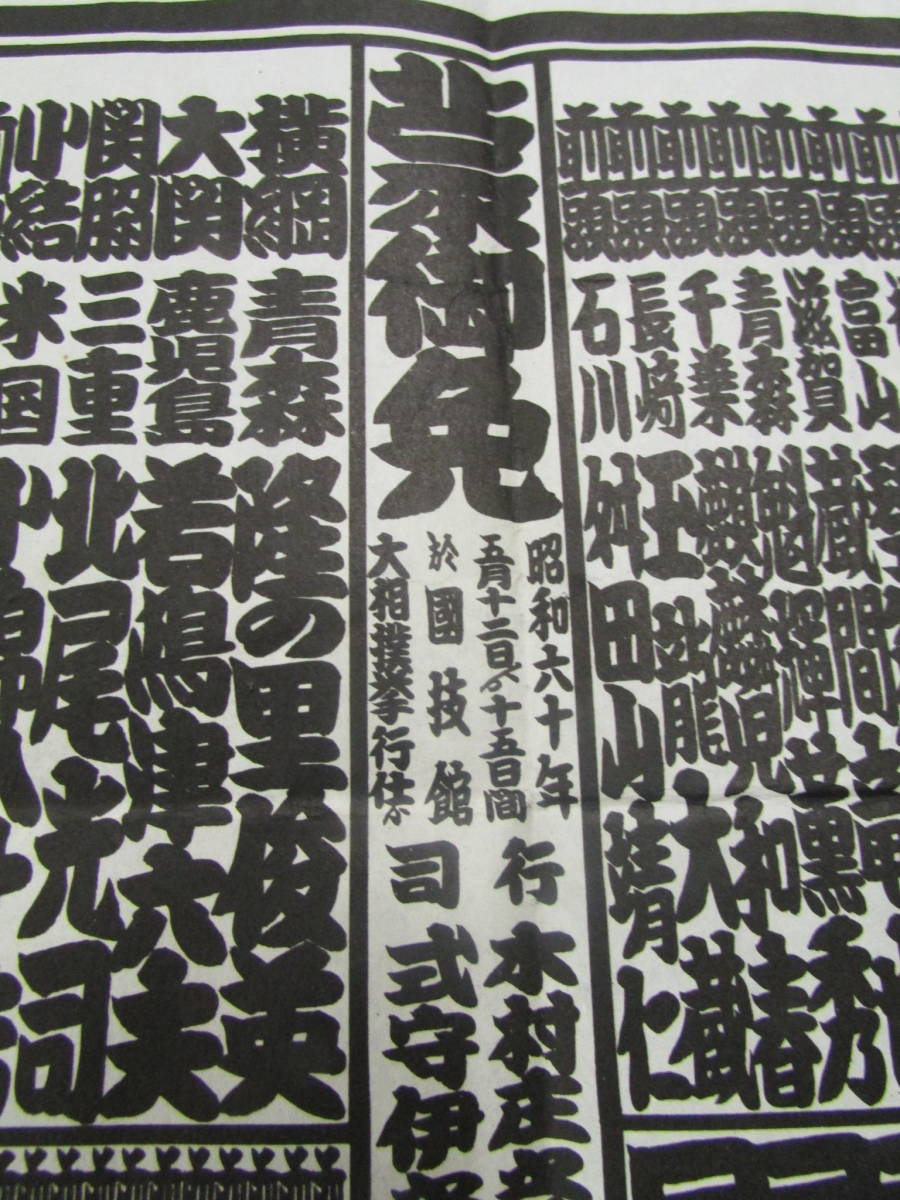 前頭 滋賀 蔵間竜也
前頭 青森 魁輝薫秀
前頭 千葉 麒麟児和春
前頭 長崎 玉龍大蔵
前頭 石川 舛田山靖仁
蒙御免
昭和六十年
五月十二日ゟ十五日間
於國技館
大相撲挙行仕候
行司
木村庄
式守伊
横綱 青森 隆の里俊英
大関 鹿児島 若嶋津六夫
関脇 三重 北尾光司
小結 米国